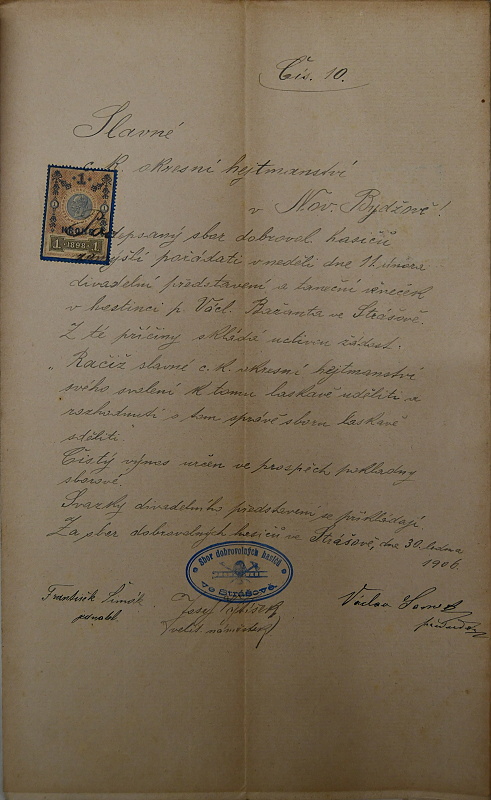 Čís. 10.
Slavné
c. k. okresní hejtmanství
v Nov. Bydžově!
1
KRONA
1 1898 1
Podepsaný sbor dobrovol. hasičů
zamýšlí pořádati v neděli dne 11. února
divadelní představení a taneční věneček
v hostinci p. Václ. Bažanta ve Strašově.
Z té příčiny skládá uctivou žádost:
„Račiž slavné c. k. okresní hejtmanství
svého svolení k tomu laskavě uděliti a
rozhodnutí o tom správě sboru laskavě
sděliti.
Čistý výnos určen ve prospěch pokladny
sborové.
Svazky divadelního představení se přikládají.
Za sbor dobrovolných hasičů ve Strašově, dne 30. ledna
1906.
Sbor dobrovolných hasičů
ve Strašově.
František Šimák
Josef
Václav
jednatel
velit. náměstek
předseda